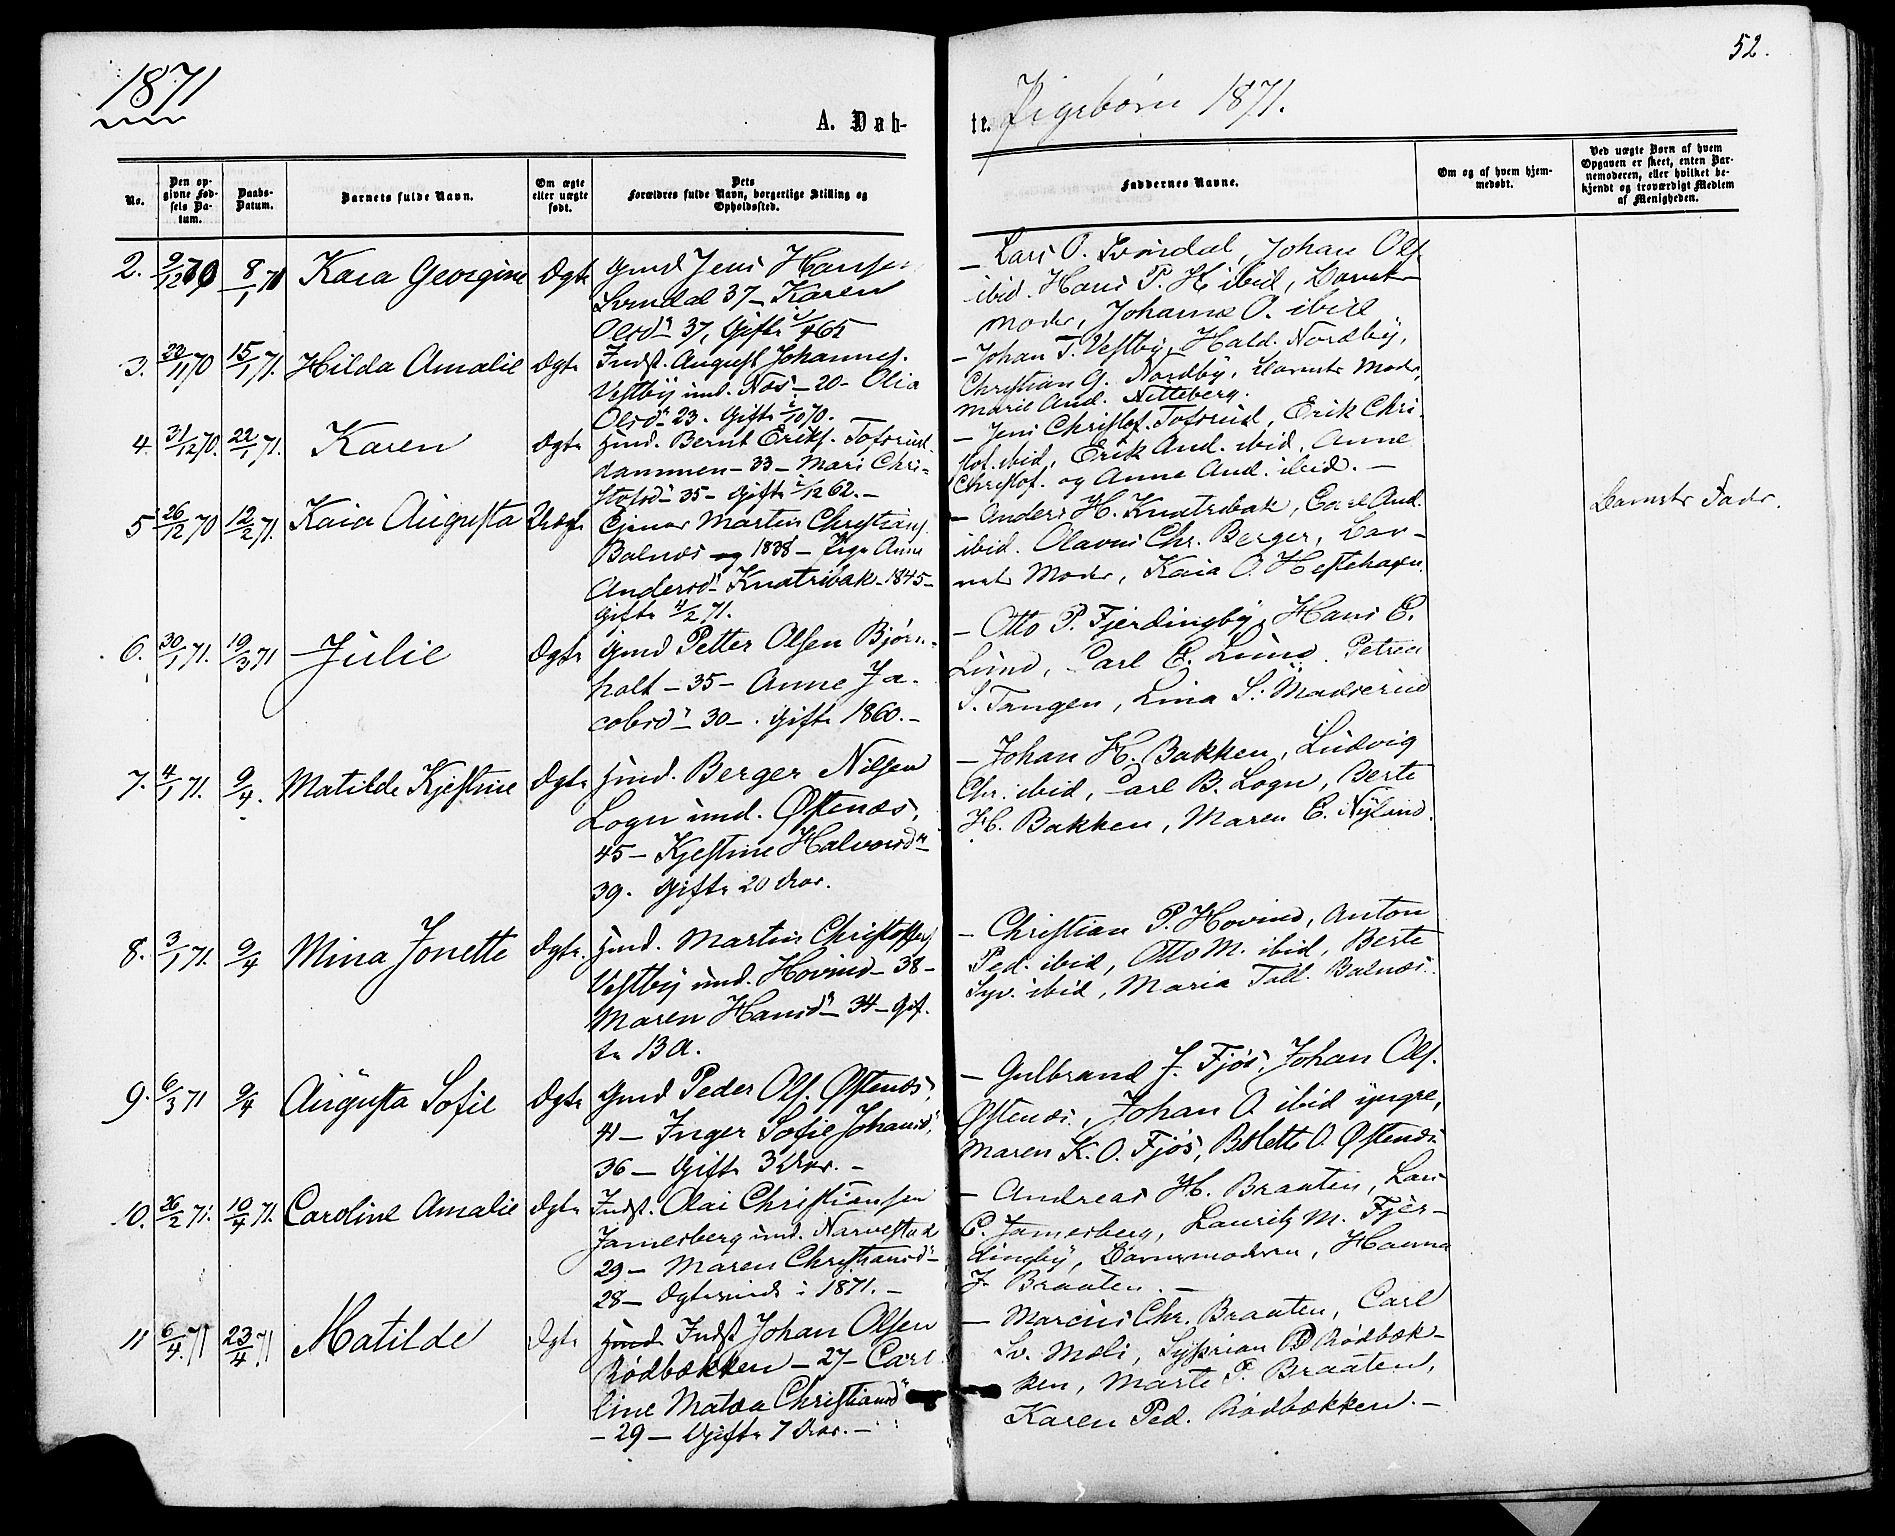 52.
1871
A. Døb-
te. Pigebørn 1871.
No.
Den opgivne Fødsels Datum.
Daabs-Datum.
Barnets fulde Navn.
Om ægte eller uægte født.
Dets Forældres fulde Navn, borgerlige Stilling og Opholdssted.
Faddernes Navne.
Om og af hvem hjemmedøbt.
Ved uægte Børn af hvem Opgaven er skeet, enten Barnemoderen, eller hvilket bekjendt og troværdigt Medlem af Menigheden.
2. 9/12 70 8/1 71 Kaia Georgine Ægte Gmd Jens Hansen
37 - Karen
Olsd: 37, Gifte 65
- Lars O. Johan Ols.
ibid. Hans P. H ibid, Barnets
Moder, Johanne O. ibid
3. /11 70 15/1 71. Hilda Amalie Ægte Indst. August Johannes.
Vestby und. Næs - 20 - Olia
Olsd: 23. Gifte /10 70. -
- Johan T. Vestby, Hald. Nordby,
Christian G. Nordby, Barnets Moder,
Marie And. Nitteberg.
4. 31/12 70. 22/1 71. Karen Ægte Hmd. Bernt Eriks. Tofsrud
dammen - 33 - Mari Chri-
stofsd: 35 - Gifte /12 62. -
- Jens Christof. Tofsrud, Erik Chri-
stof. ibid, Erik And. ibid, Anne
Christof. og Anne And. ibid. -
5 26/12 70 12/2 71. Kaia Augusta Uægte Martin Christians.
Balnæs og 1838 - Pige Anne
Andersd: Knatribak - 1845 -
Gifte /2 71.
- Anders H. Knatribak, Carl And.
ibid. Olavus Chr. Berger, Bar-
nets Moder, Kaia O. Hestehagen.
Barnets Fader.
6. 30/1 71. 19/3 71 Julie Ægte Gmd Petter Olsen Bjørn-
holt - 35 - Anne Ja-
cobsd: 30 - . Gifte 1860. -
- Otto P. Fjerdingby, Hans E.
Lund, Carl E. Lund. Petrea
S. Tangen, Lina S. Madserud
7. 4/1 71. 9/4. Matilde Kjestine Ægte Hmd. Berger Nilsen
Logn und. Østenæs,
45 - Kjestine Halvorsd:
39. Gifte 20 Aar.
- Johan H. Bakken, Ludvig
Chr. ibid, Carl B. Logn, Berte
H. Bakken, Maren E. Nyland.
8. 3/1 71. 9/4 Mina Jonette Ægte. Hmd. Martin Christoffers.
Vestby und. Hovind - 38 -
Maren Hansd: 34 - Gif-
te 13 A.
- Christian P. Hovind, Anton
Ped. ibid, Otto M. ibid, Berte
Syv. ibid, Maria Toll. Balnæs.
9. 6/3 71 9/4 Augusta Sofie Ægte Gmd Peder Ols. Østenæs,
41 - Inger Sofie Johansd:
36 - Gifte 3 Aar. -
- Gulbrand J. Fjøs, Johan Ols.
Østenæs, Johan O. ibid yngre,
Maren K. O. Fjøs, Bolette O. Østenæs
10. 26/2 71. 10/4 71. Caroline Amalie Ægte Indst. Olai Christiansen
Jamesberg und. Narvestad
29 - Maren Christiansd:
28 - Ægteviede i 1871. -
- Andreas H. Braaten, Lars
C. Jamesberg, Lauritz M. Fjer-
dingby, Barnemoderen, Hanna
J. Braaten. -
11 6/4 71 23/4 71 Matilde Ægte Hmd Indst Johan Olsen
Rødbækken - 27 - Caro
line Matea Christiansd:
- 29 - Gifte 7 Aar. -
- Marcus Chr. Braaten, Carl
Sv. Mæli, Syprian P Rødbæk-
ken, Marte P. Braaten,
Karen Ped. Rødbækken. -